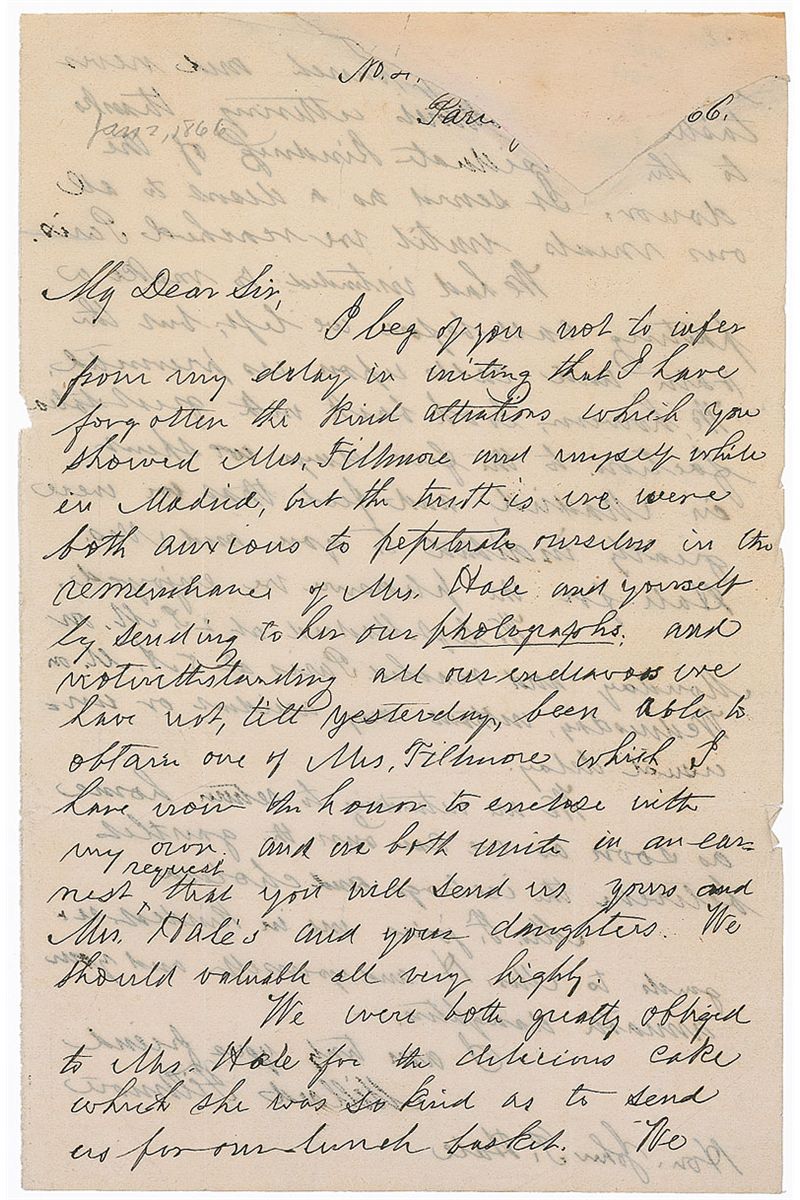 No. 2.
Jan 2, 1866
Paris 66.
My Dear Sir,
I beg of you not to infer
from my delay in writing that I have
forgotten the kind attentions which you
showed Mrs. Fillmore and myself while
in Madrid, but the truth is we were
both anxious to perpetuate ourselves in the
remembrance of Mrs. Hale and yourself
by sending to her our photographs, and
notwithstanding all our endeavors we
have not, till yesterday, been able to
obtain one of Mrs. Fillmore which I
have now the honor to enclose with
my own. and we both unite in an ear-
nest request that you will send us yours and
Mrs. Hale's and your daughters. We
should valuable all very highly.
We were both greatly obliged
to Mrs. Hale for the delicious cake
which she was so kind as to send
us for our lunch basket. We